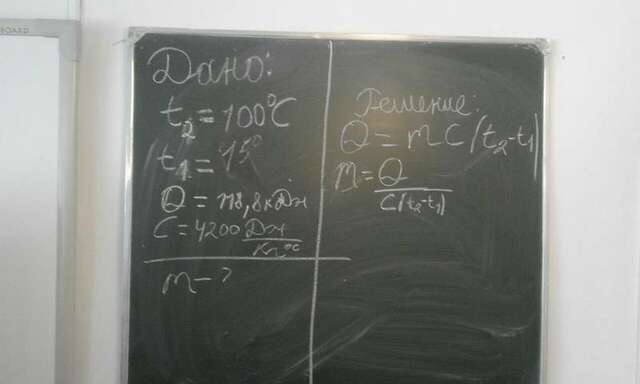 BOARD
Дано:
t₂ = 100°C
t₁ = 15°
Q = 718,8 кДж
C = 4200 Дж/Кг°C
m – ?
Решение:
Q = mC(t₂-t₁)
m = Q/C(t₂-t₁)